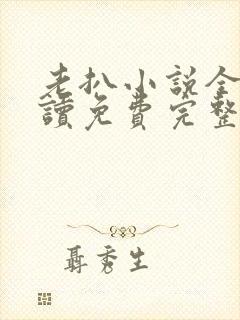 老扒小说全
讀免费完整
聶秀生